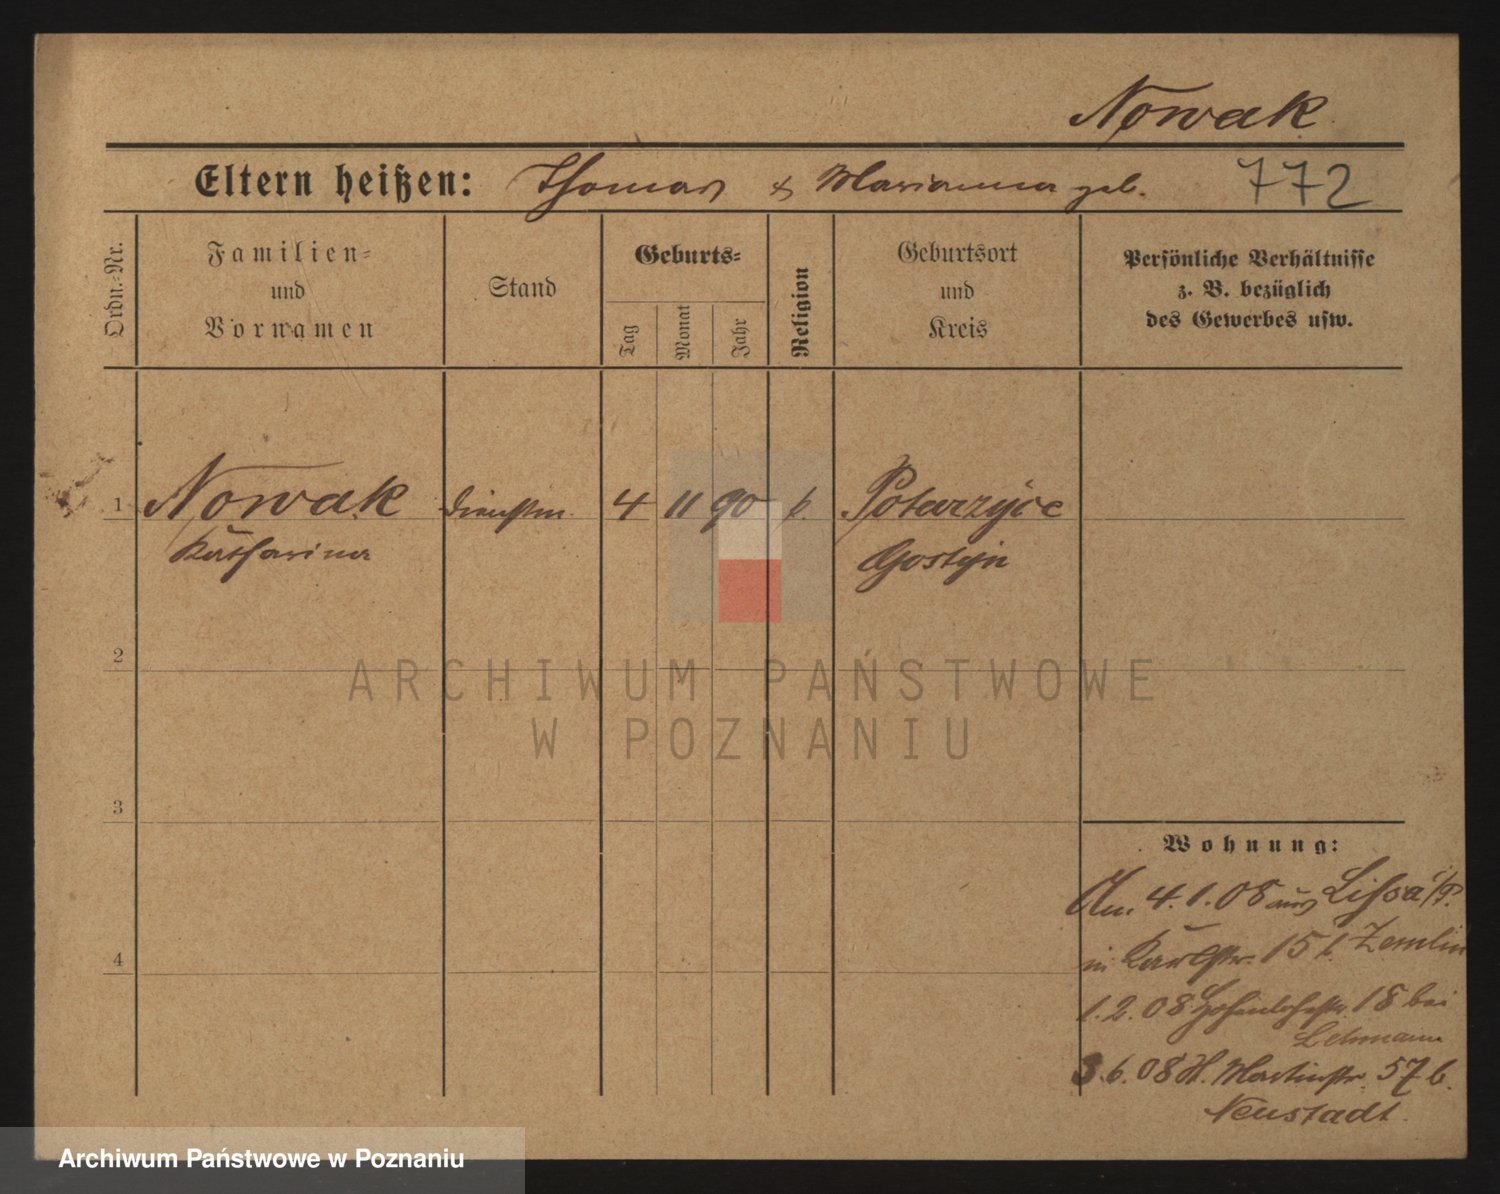 Nowak
Eltern heißen: Thomas & Marianna geb. 772
Ordn.-Nr.
Familien-
und
Vornamen
Stand
Geburts-
Tag
Monat
Jahr
Religion
Geburtsort
und
Kreis
Persönliche Verhältnisse
z. B. bezüglich
des Gewerbes usw.
1 Nowak Dienstm. 4 11 90 k. Potarzyce
Katharina Gostyn
2
3
4
Wohnung:
Am 4.1.08 aus Lissa i/P.
in Karlstr. 15 b. Zemlin
1.2.08 Hohenlohestr. 18 bei
Lehmann
3.6.08 St. Martinstr. 57 b.
Neustadt.
ARCHIWUM PAŃSTWOWE
W POZNANIU
Archiwum Państwowe w Poznaniu